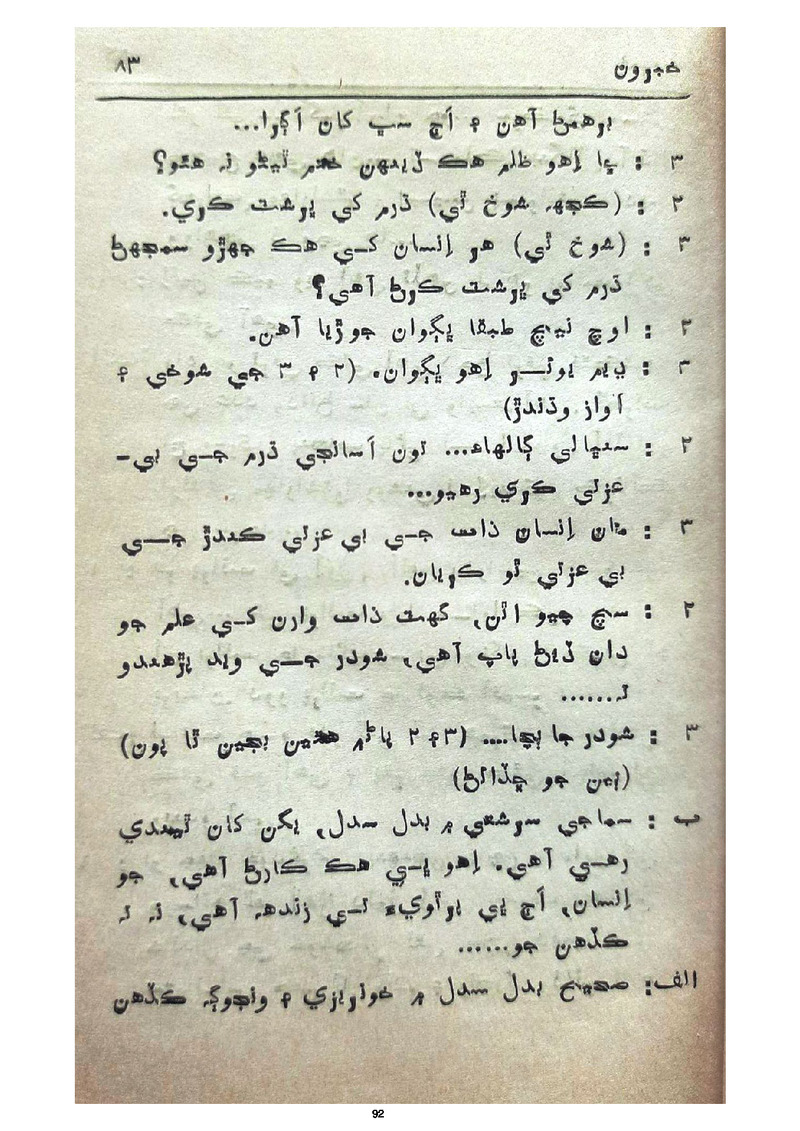 خبرون ۸۳
برهمڻ آهن ۽ اَڇ سڀ کان اَڳرا...
۳ : ڇا اِهو ظلم هڪ ڏينهن ختم ٿيڻو نہ هتو؟
۲ : (ڪجهہ شوخ ٿي) ڌرم کي ڀرشٽ ڪري.
۳ : (شوخ ٿي) هر اِنسان کي هڪ جهڙو سمجهڻ
ڌرم کي ڀرشٽ ڪرڻ آهي؟
۲ : اوچ نيچ طبقا ڀڳوان جوڙيا آهن.
۳ : اِهو ڀڳوان. (۲ ۽ ۳ جي شوخي ۽
آواز وڌندڙ)
۲ : سنڀالي ڳالهاءِ... تون اَسانجي ڌرم جي بي-
عزتي ڪري رهيو...
۳ : مان اِنسان ذات جي بي عزتي ڪندڙ جي
بي عزتي ٿو ڪريان.
۲ : سچ چيو اٿن، گهٽ ذات وارن کي علم جو
دان ڏيڻ پاپ آهي، شودر جي ويد پڙهندو
تہ.......
۳ : شودر جا ٻچا.... (۳۽۲ پاڻ۾ هٿين ٻڃين ٿا پون)
(ٻين جو ڇڏائڻ)
ب : سماجي سرشتي ۾ بدل سدل، يگن کان ٿيندي
رهي آهي. اِهو ئي هڪ ڪارڻ آهي، جو
اِنسان، اَڄ ڀي پرٿويءَ تي زندهہ آهي، نہ تہ
ڪڏهن جو......
الف: صحيح بدل سدل ۾ خونريزي ۽ ڪڏهن
92